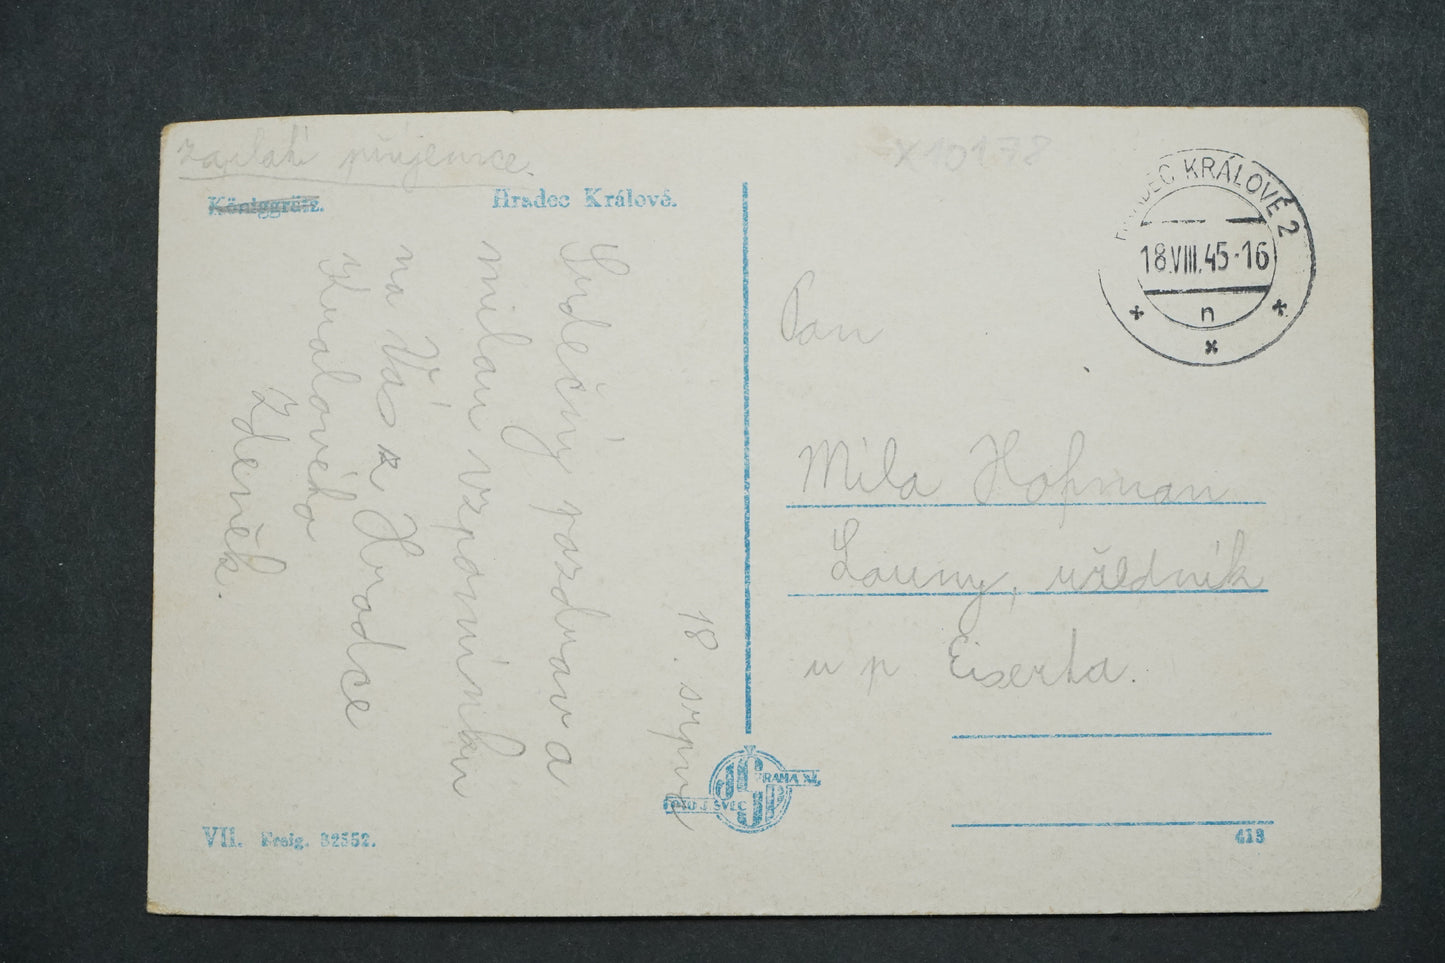 zaplatí příjemce.
Königgrätz.
Hradec Králové.
18. srpna
Srdečný pozdrav a
milou vzpomínku
na Vás z Hradce
Králového
Zdeněk.
VII. Freig. 32552.
FOTO J. ŠVEC
PRAHA XI.
JŠP
x10178
HRADEC KRÁLOVÉ 2
18.VIII.45-16
n
Pan
Mila Hofman
Louny, uředník
u p Eiserta.
413